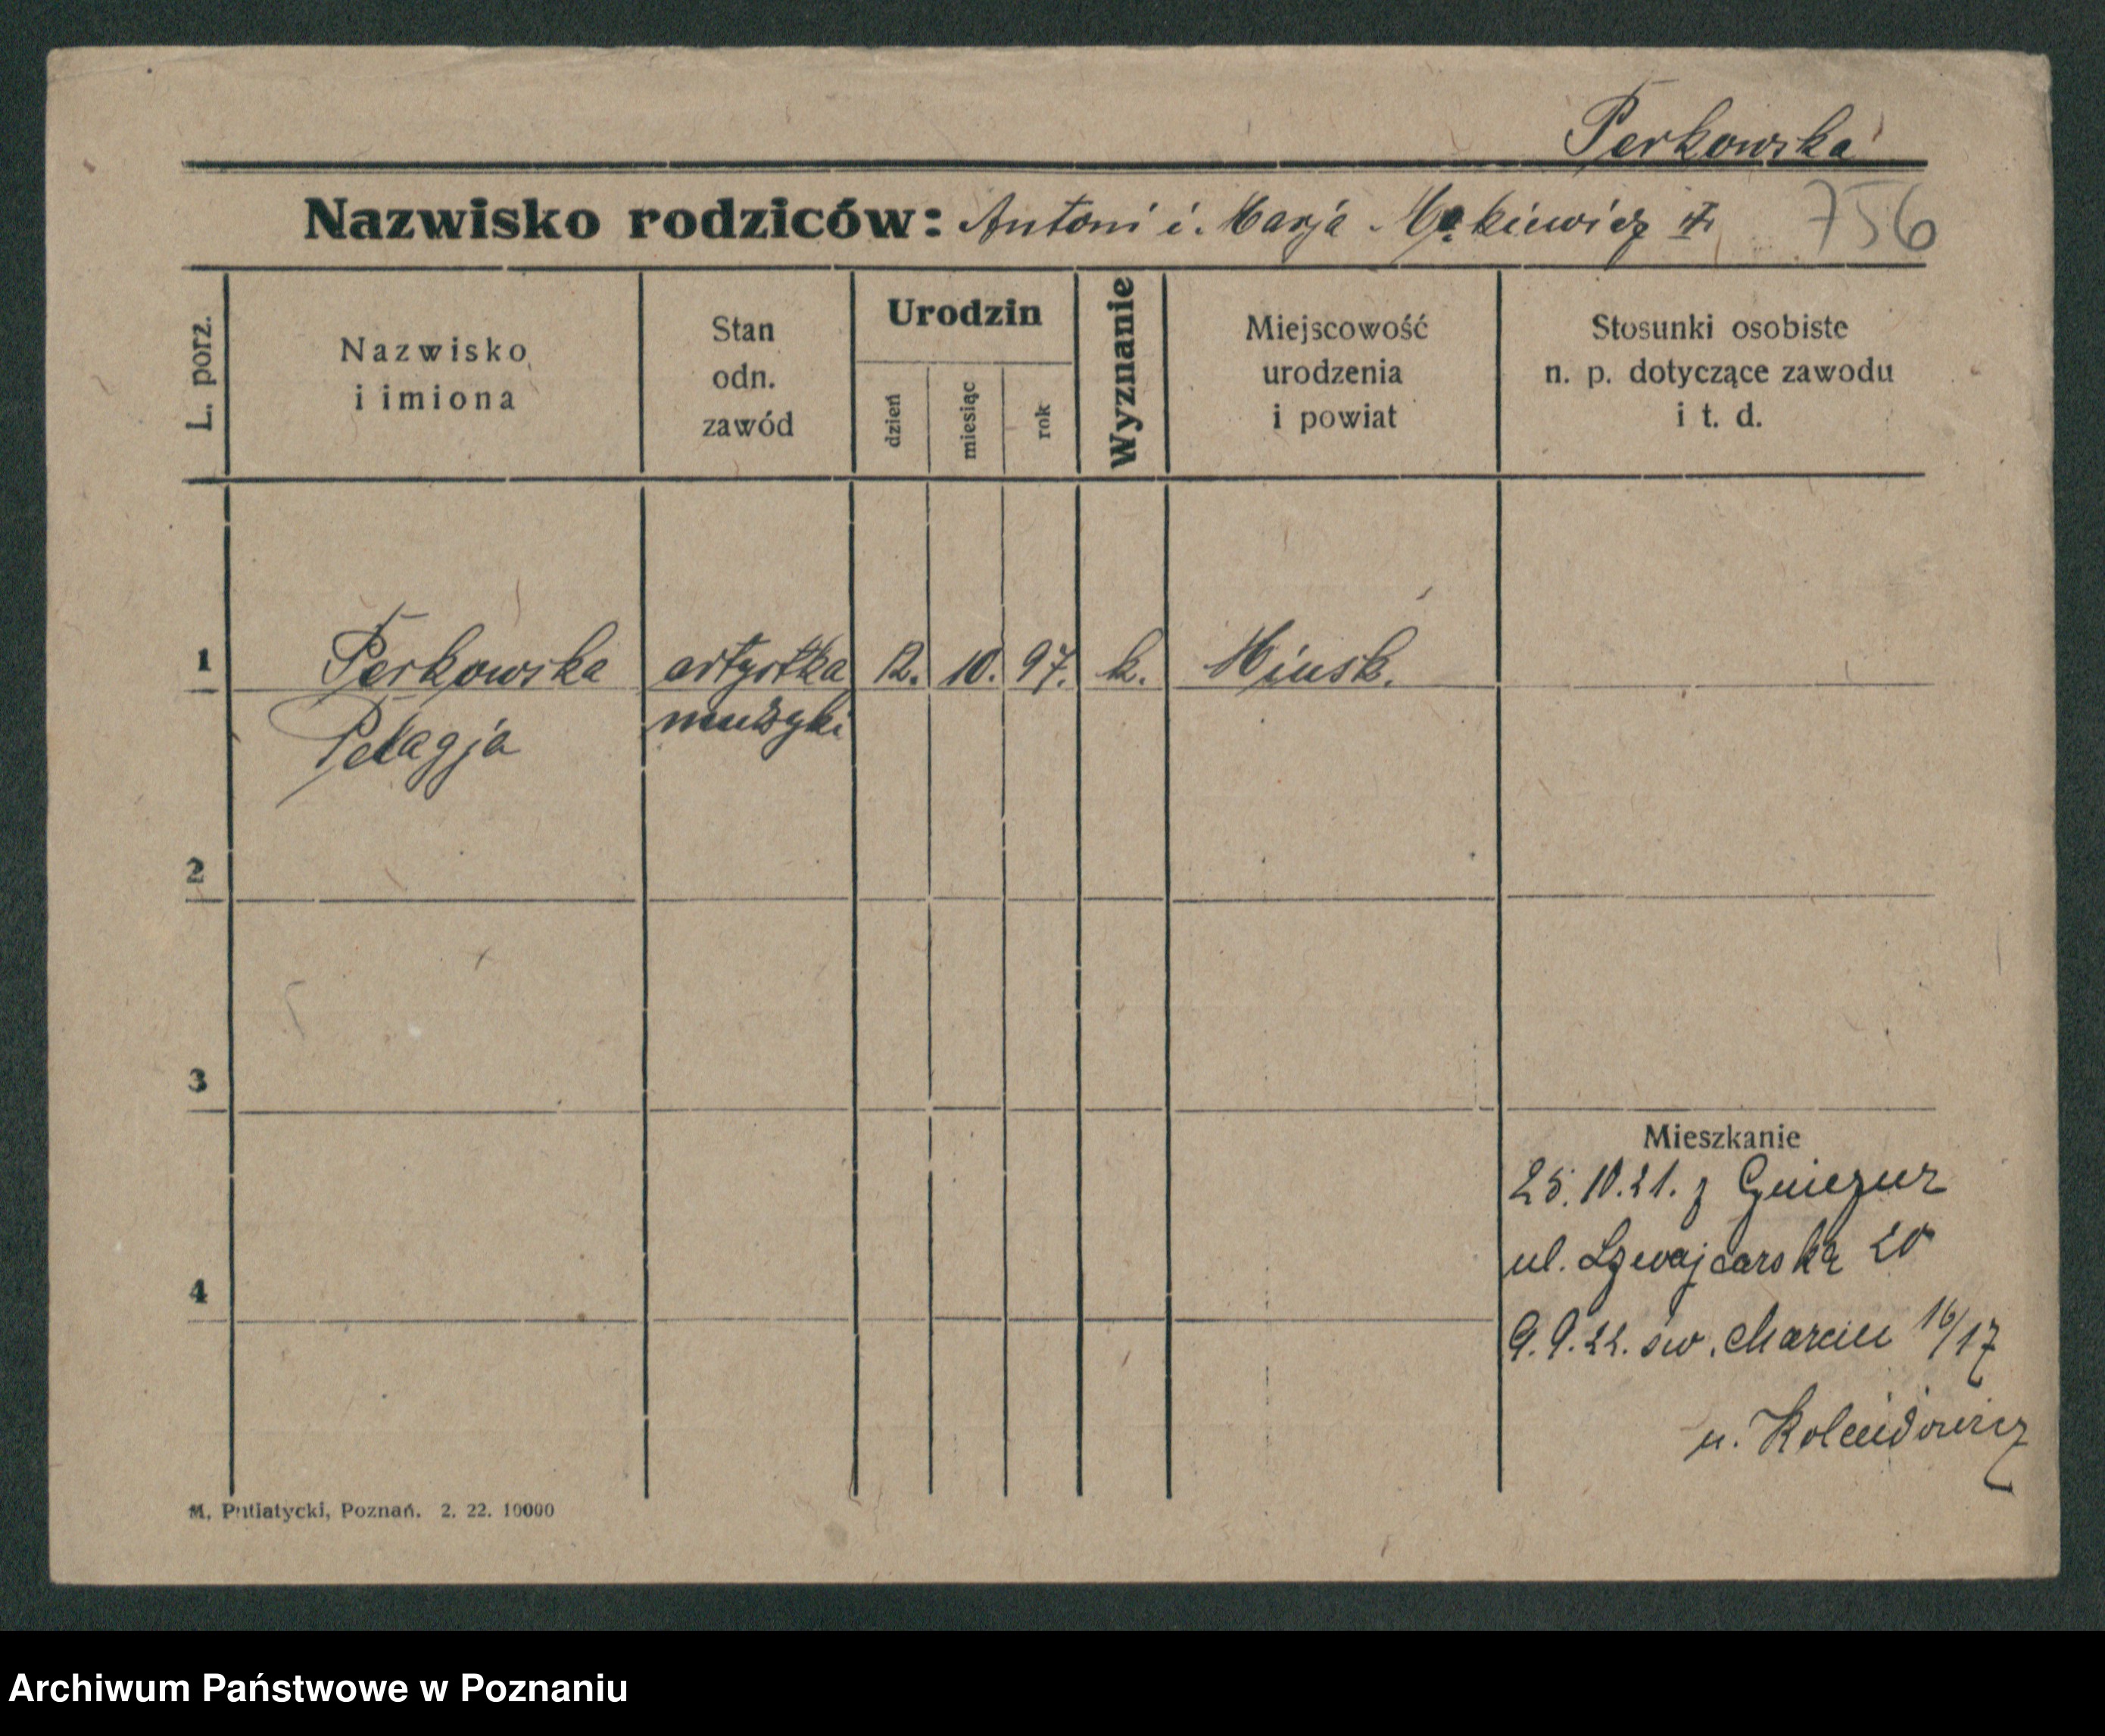 Perkowska
Nazwisko rodziców: Antoni i Marja Mąkiewicz
756
L. porz.
Nazwisko
i imiona
Stan
odn.
zawód
Urodzin
dzień
miesiąc
rok
Wyznanie
Miejscowość
urodzenia
i powiat
Stosunki osobiste
n. p. dotyczące zawodu
i t. d.
1 Perkowska artystka 12. 10. 97. k. Minsk.
Pelagja muzyki
2
3
4
Mieszkanie
25.10.21. z
ul. Szwajcarska 20
9.9.22. św. Marcin 16/17
u.
M. Putiatycki, Poznań. 2. 22. 10000
Archiwum Państwowe w Poznaniu